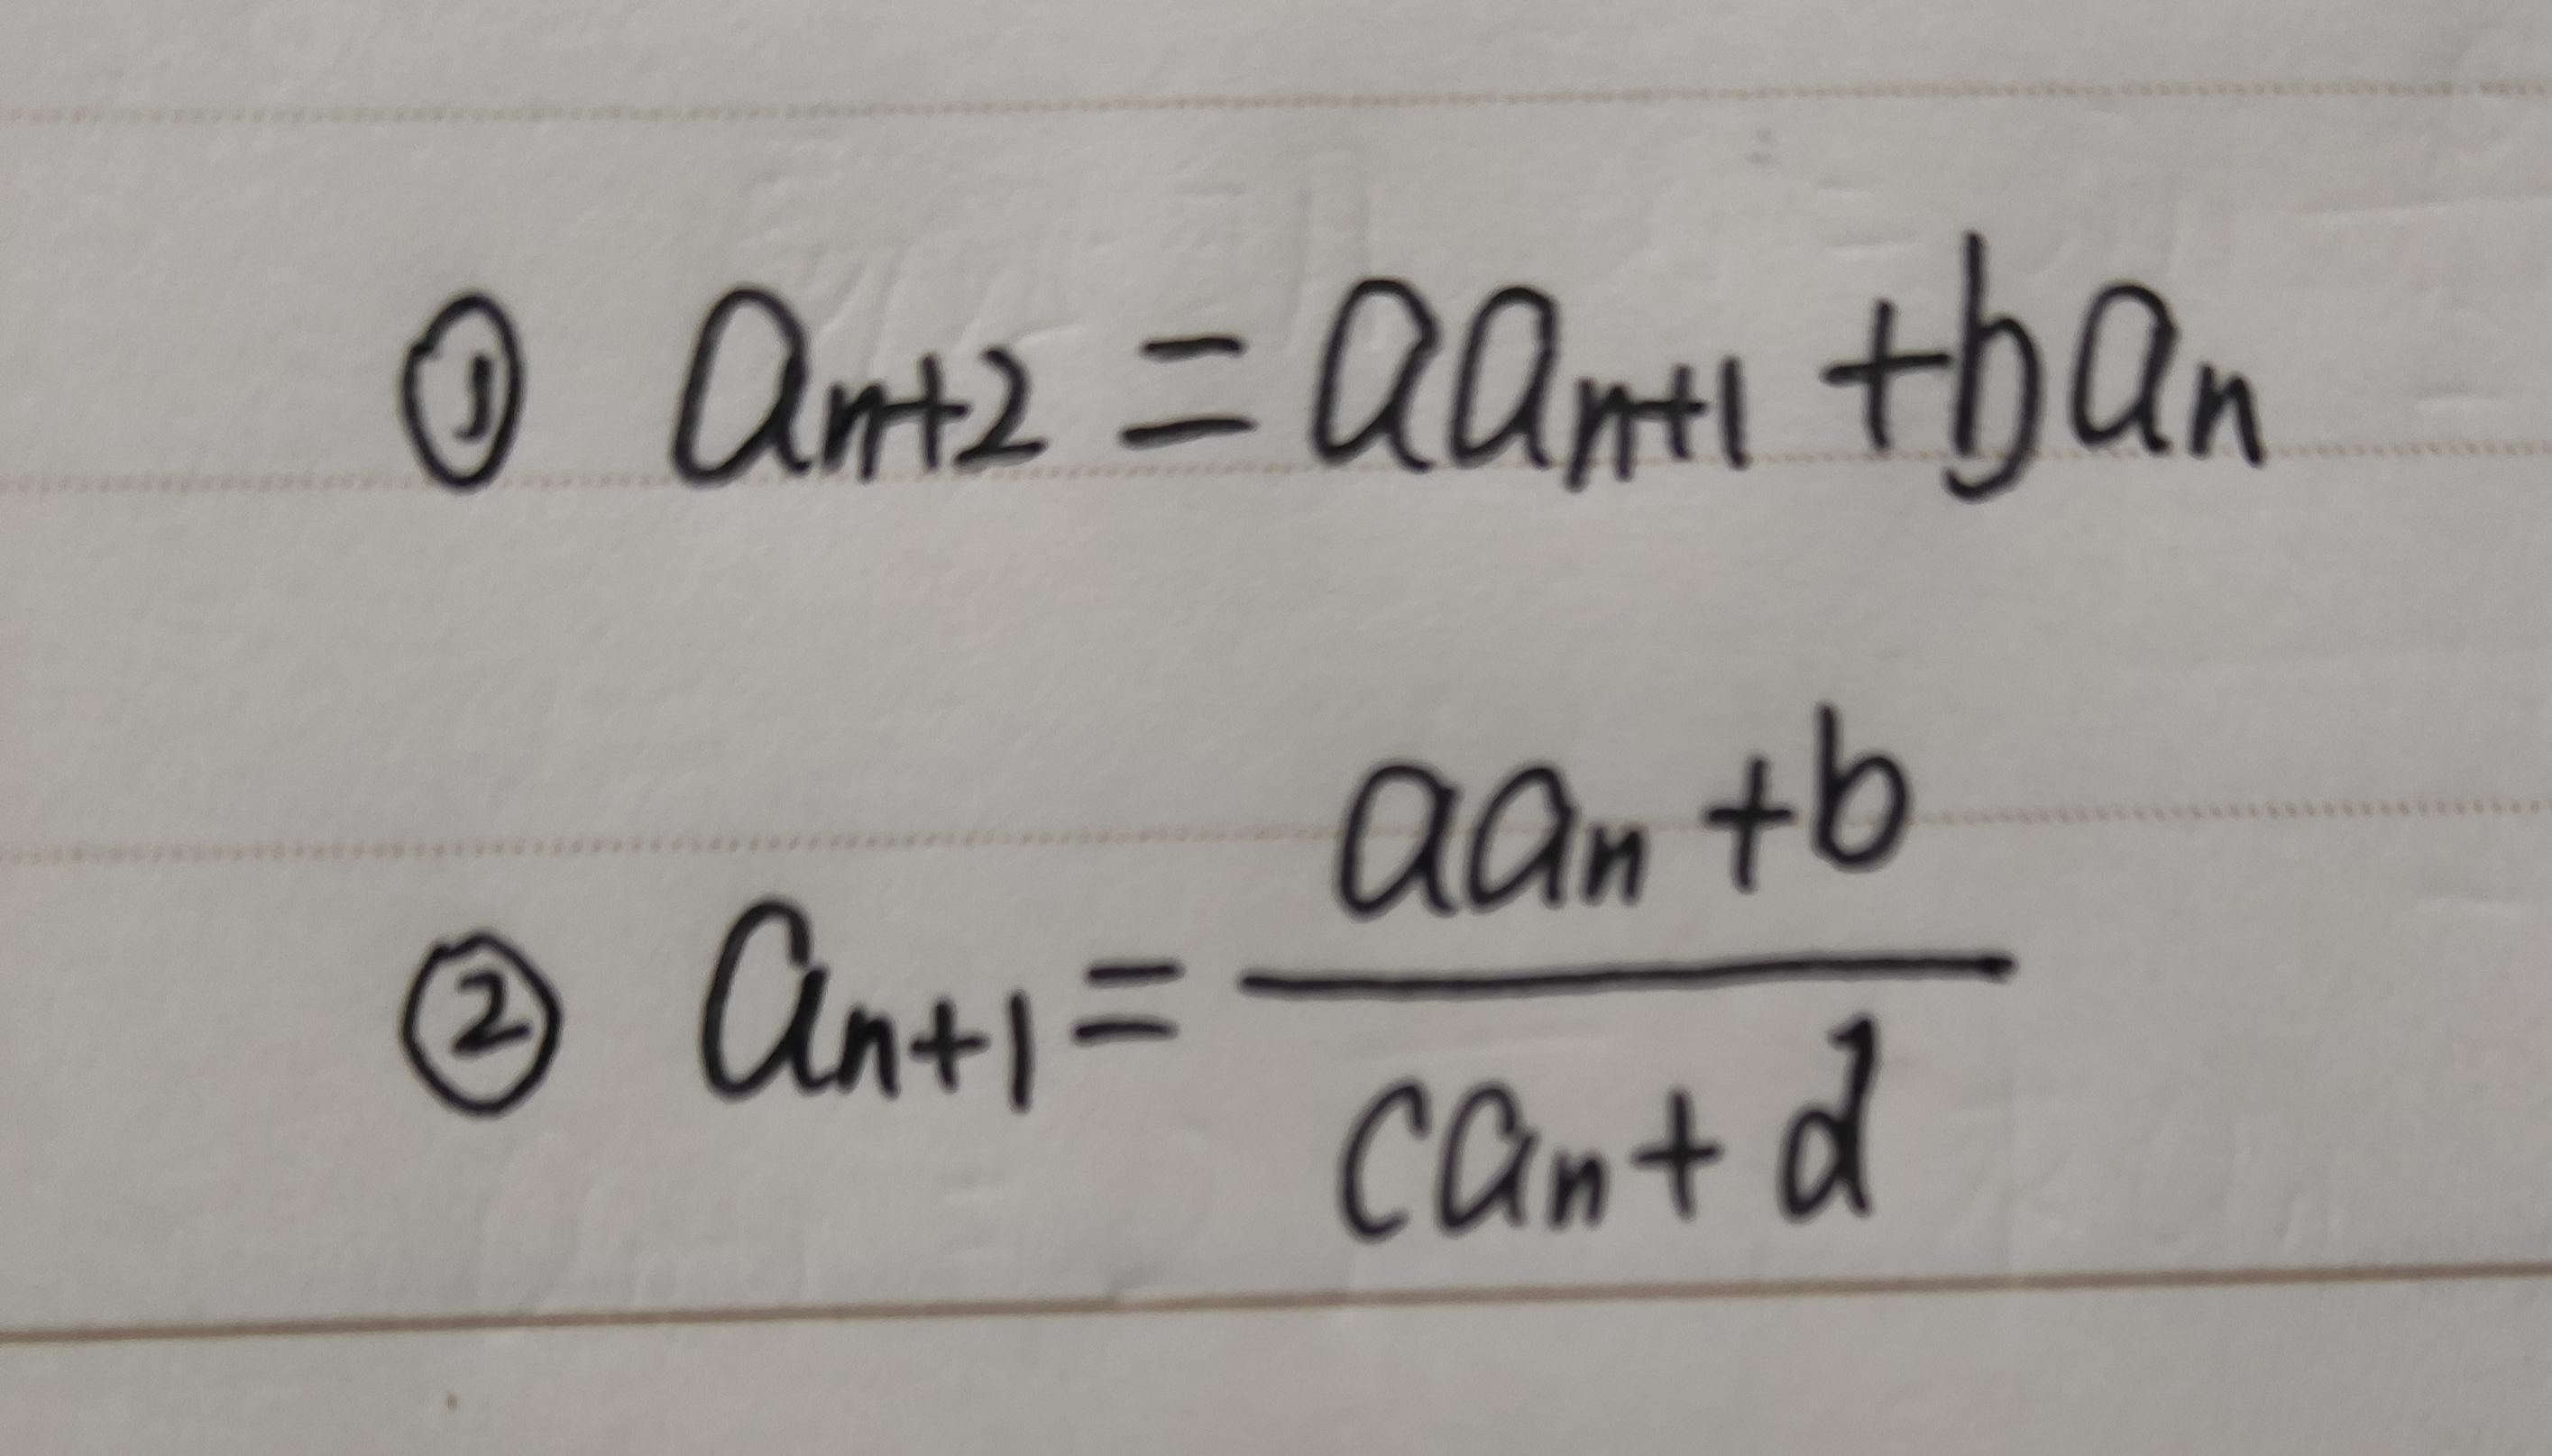 ① aₙ₊₂ = aaₙ₊₁ + baₙ
② aₙ₊₁ = (aaₙ + b) / (caₙ + d)